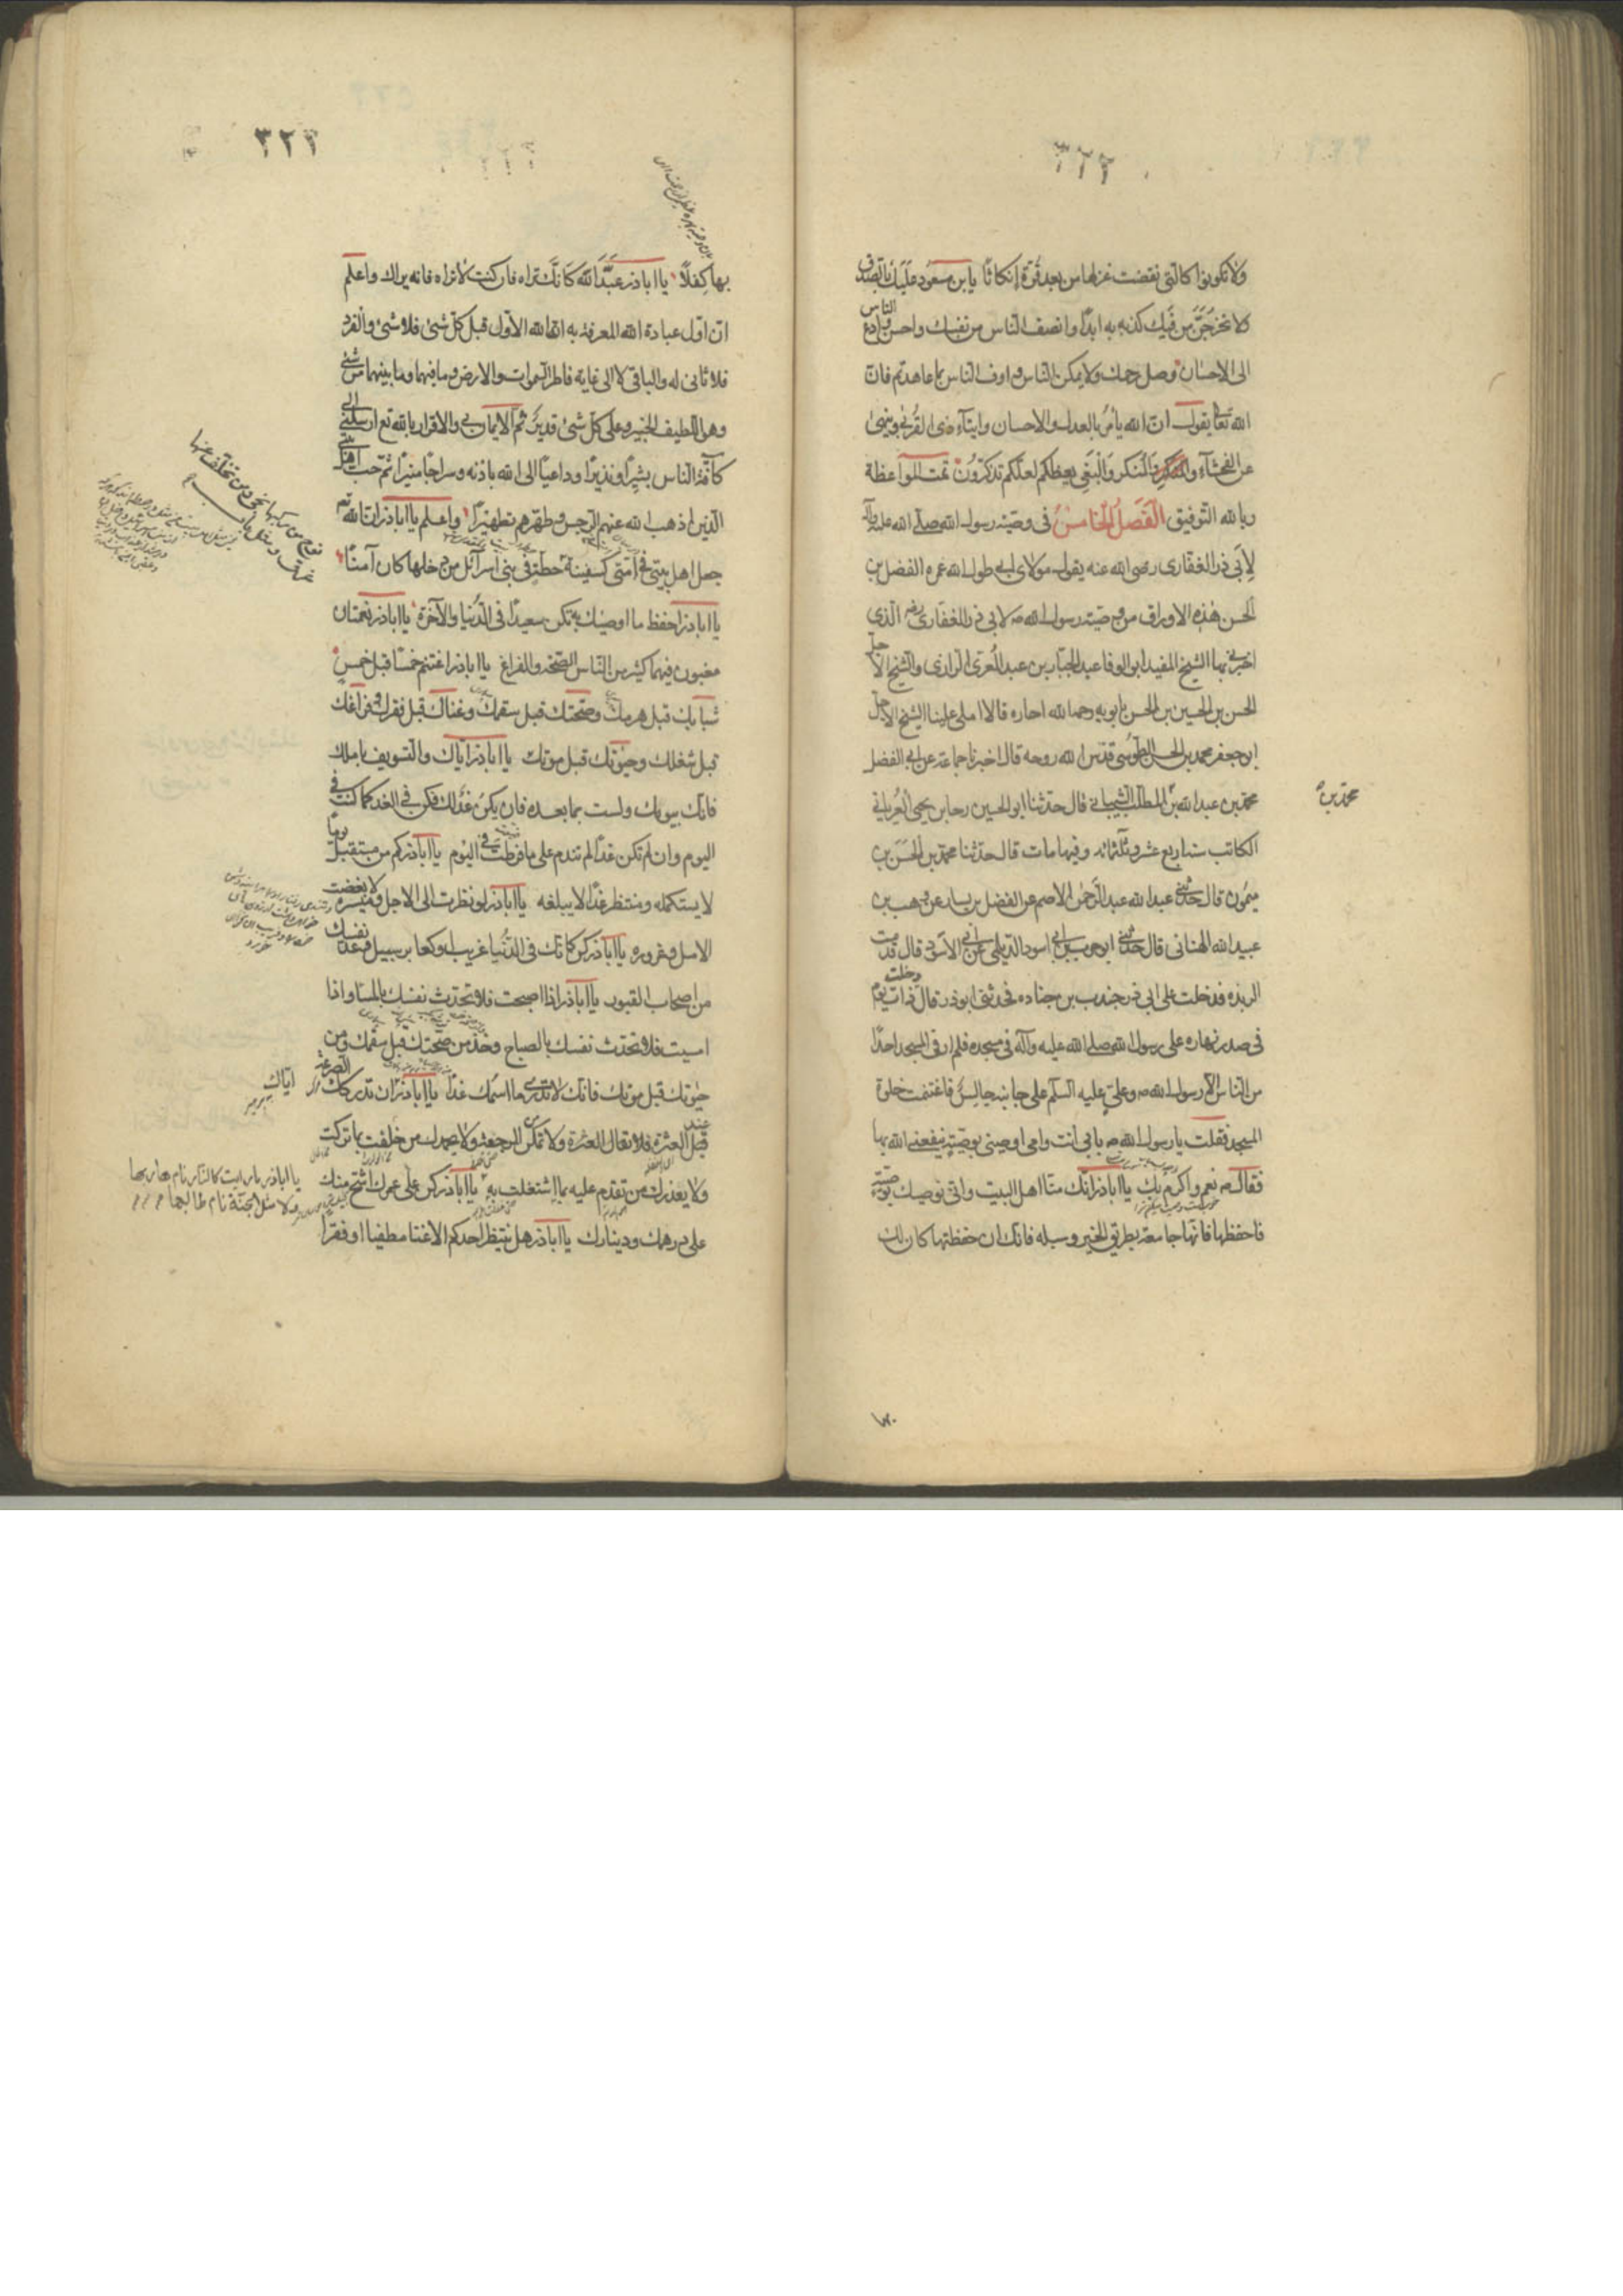 ٣٢٢
ولا تكونوا كالتي نقضت غزلها من بعد قوة انكاثا يا بن مسعود عليك بالصدق
ولا تخرجن من فيك كذبة ابدا وانصف الناس من نفسك واحسن وادع الناس
الى الاحسان وصل رحمك ولا تمكر الناس واوف الناس بما عاهدتم فان
الله تعالى يقول ان الله يأمر بالعدل والاحسان وايتاء ذى القربى وينهى
عن الفحشاء والمنكر والبغى يعظكم لعلكم تذكرون تمت المواعظة
وبالله التوفيق الفصل الخامس فى وصية رسول الله صلى الله عليه وآله
لابى ذر الغفارى رضى الله عنه يقول مولاى ابى طول الله عمره الفضل بن
الحسن هذه الاوراق من وصية رسول الله ص لابى ذر الغفارى رضه الذى
اخبرنى بها الشيخ المفيد ابو الوفا عبد الجبار بن عبد الله المقرى الرازى والشيخ الاجل
الحسن بن الحسين بن الحسن بابويه رحمها الله اجازه قالا املى علينا الشيخ الاجل
ابو جعفر محمد بن الحسن الطوسى قدس الله روحه قال اخبرنا جماعة عن ابى المفضل
محمد بن عبد الله بن المطلب الشيبانى قال حدثنا ابو الحسين رجا بن يحيى العبرتائى
محمد بن
الكاتب سنة اربع عشر وثلثمائه وفيها مات قال حدثنا محمد بن الحسن بن
ميمون قال حدثنى عبد الله عبد الرحمن الاصم عن الفضل بن يسار عن وهب بن
عبيد الله الهنائى قال حدثنى ابو حرب بن ابى اسود الديلى عن ابى الاسود قال قدمت
الربذه فدخلت على ابى ذر جندب بن جناده فحدثنى ابوذر قال دخلت ذات يوم
فى صدر نهاره على رسول الله صلى الله عليه وآله فى مسجده فلم ار فى المسجد احدا
من الناس الا رسول الله ص وعلى عليه السلم على جانبه جالس فاغتنمت خلوة
المسجد فقلت يا رسول الله ص بابى انت وامى اوصينى بوصية ينفعنى الله بها
فقال ص نعم واكرم بك يا اباذر انك منا اهل البيت وانى نوصيك بوصية
فاحفظها فانها جامعة بطريق الخير وسبله فانك ان حفظتها كان لك
٣٢٢
بها كفلا يا اباذر عبد الله كانك تراه فان كنت لا تراه فانه يراك واعلم
ان اول عبادة الله المعرفة به انه الله الاول قبل كل شئ فلا شئ والفرد
فلا ثانى له والباقى لا الى غاية فاطر السموات والارض وما فيهما وما بينهما من شئ
وهو اللطيف الخبير وعلى كل شئ قدير ثم الايمان بى والاقرار بالله تع ارسلنى الى
كافة الناس بشيرا ونذيرا وداعيا الى الله باذنه وسراجا منيرا ثم حب اهل بيتى
الذين اذهب الله عنهم الرجس وطهرهم تطهيرا واعلم يا اباذر ان الله تع
جعل اهل بيتى فى امتى كسفينة حطة فى بنى اسرائل من دخلها كان آمنا
يا اباذر احفظ ما اوصيك به تكن سعيدا فى الدنيا والآخرة يا اباذر نعمتان
مغبون فيهما كثير من الناس الصحة والفراغ يا اباذر اغتنم خمسا قبل خمس
شبابك قبل هرمك وصحتك قبل سقمك وغناك قبل فقرك وفراغك
قبل شغلك وحيوتك قبل موتك يا اباذر اياك والتسويف باملك
فانك بيومك ولست بما بعده فان يكن غد لك فكن فى الغد كما كنت فى
اليوم وان لم تكن غدا لم تندم على ما فرطت فى اليوم يا اباذر كم من مستقبل يوما
لا يستكمله ومنتظر غدا لا يبلغه يا اباذر لو نظرت الى الاجل ومسيره لا بغضت
الامل وغروره يا اباذر كن كانك فى الدنيا غريب او كعابر سبيل وعد نفسك
من اصحاب القبور يا اباذر اذا اصبحت فلا تحدث نفسك بالمسا واذا
امسيت فلا تحدث نفسك بالصباح وخذ من صحتك قبل سقمك ومن
حيوتك قبل موتك فانك لا تدرى ما اسمك غدا يا اباذر ان تدركك الصرعة
اياك
عند العثرة فلا تقال العثرة ولا تمكن الرجعة ولا يحمدك من خلفت بما تركت
ولا يعذرك من تقدم عليه بما اشتغلت به يا اباذر كن على عمرك اشح منك
يا اباذر ما رايت كالنار نام هاربها
ولا مثل الجنة نام طالبها
على درهمك ودينارك يا اباذر هل ينتظر احدكم الا غنا مطغيا او فقرا